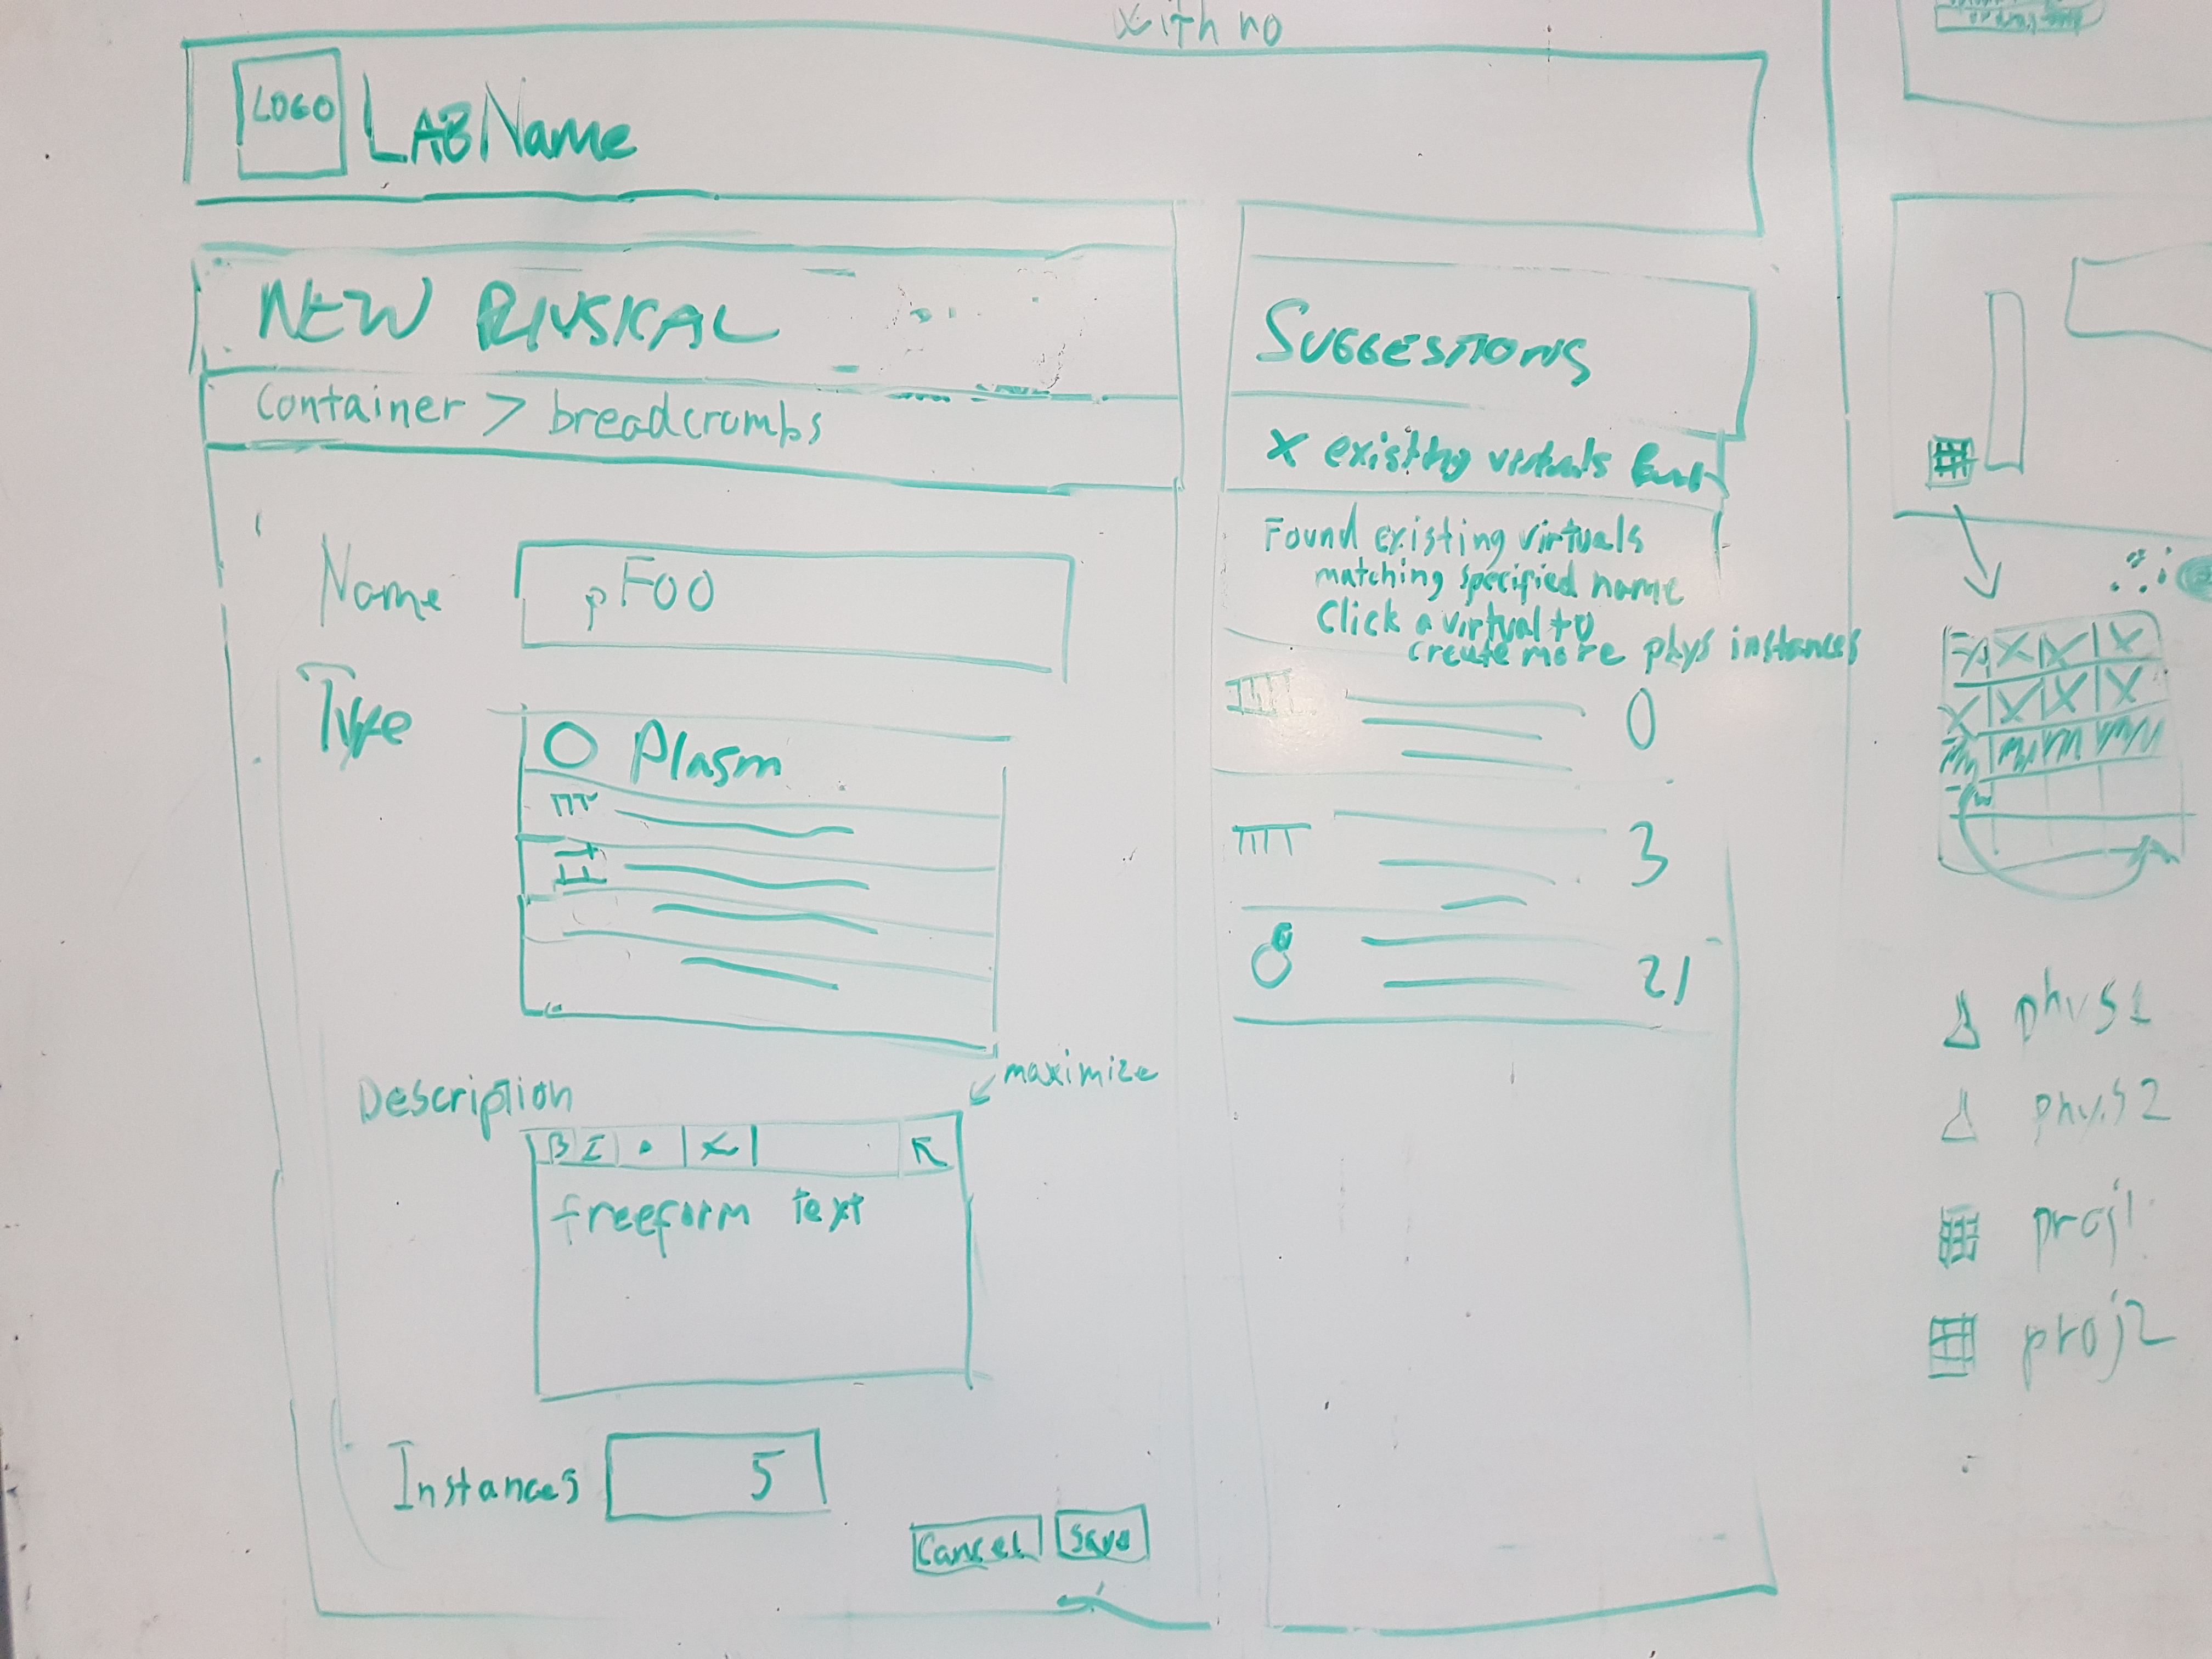 with no
LOGO
LAB Name
NEW PHYSICAL
Container > breadcrumbs
Name
pFOO
Type
Plasm
Description
maximize
B I
freeform text
Instances
5
Cancel
Save
SUGGESTIONS
X existing virtuals
Found existing virtuals
matching specified name
Click a virtual to
create more phys instances
0
3
21
phys1
phys2
proj1
proj2